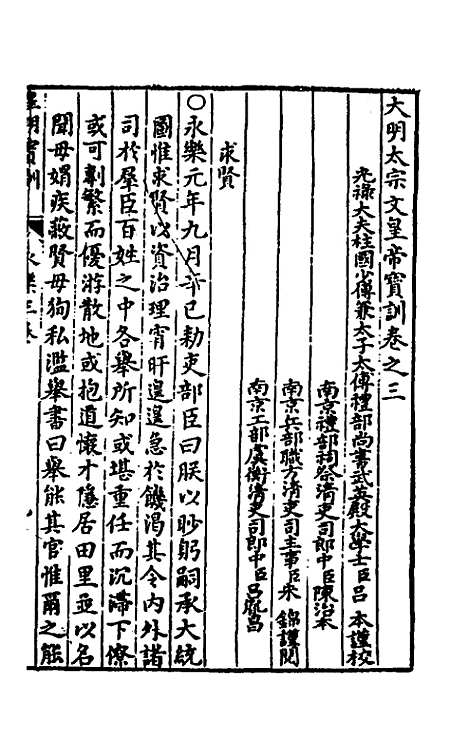 大明太宗文皇帝寶訓卷之三
光祿大夫柱國少傅兼太子太傅禮部尚書武英殿大學士臣呂 本謹校
南京禮部祠祭清吏司郎中臣陳治本
南京兵部職方清吏司主事臣朱 錦謹閱
南京工部虞衡清吏司郎中臣呂胤昌
求賢
○永樂元年九月辛巳勅吏部臣曰朕以眇躬嗣承大統
國惟求賢以資治理宵旰遑遑急於饑渴其令內外諸
司於羣臣百姓之中各舉所知或堪重任而沉滯下僚
或可剸繁而優游散地或抱道懷才隱居田里並以名
聞毋媢疾蔽賢毋狥私濫舉書曰舉能其官惟爾之能
皇明寶訓 永樂三卷